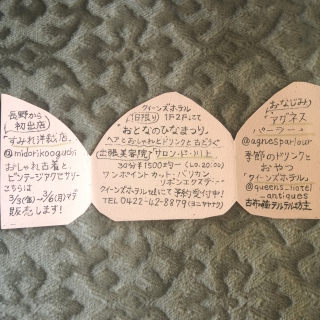 長野から
初出店
すみれ洋裁店
@midorikooguchi
おしゃれ古着と
ビンテージアクセサリー
こちらは
3/3(金)〜3/6(月)マデ
販売します!
クイーンズホテル
1日限り 1F2Fにて
"おとなのひなまつり"
ヘアとおしゃれとドリンクと古どうぐ
出張美容院 サロン・ド・川上
30分¥1500均一 (L.O. 20:00)
ワンポイントカット・バリカン
リボンエクステ…
クイーンズホテルtelにて予約受付中!
TEL 0422-42-8879(ヨニヤナナク)
おなじみ
アグネス
パーラー
@agnesparlour
季節のドリンクと
おやつ
クイーンズホテル
@queens_hotel
_antiques
古市場テルテル坊主